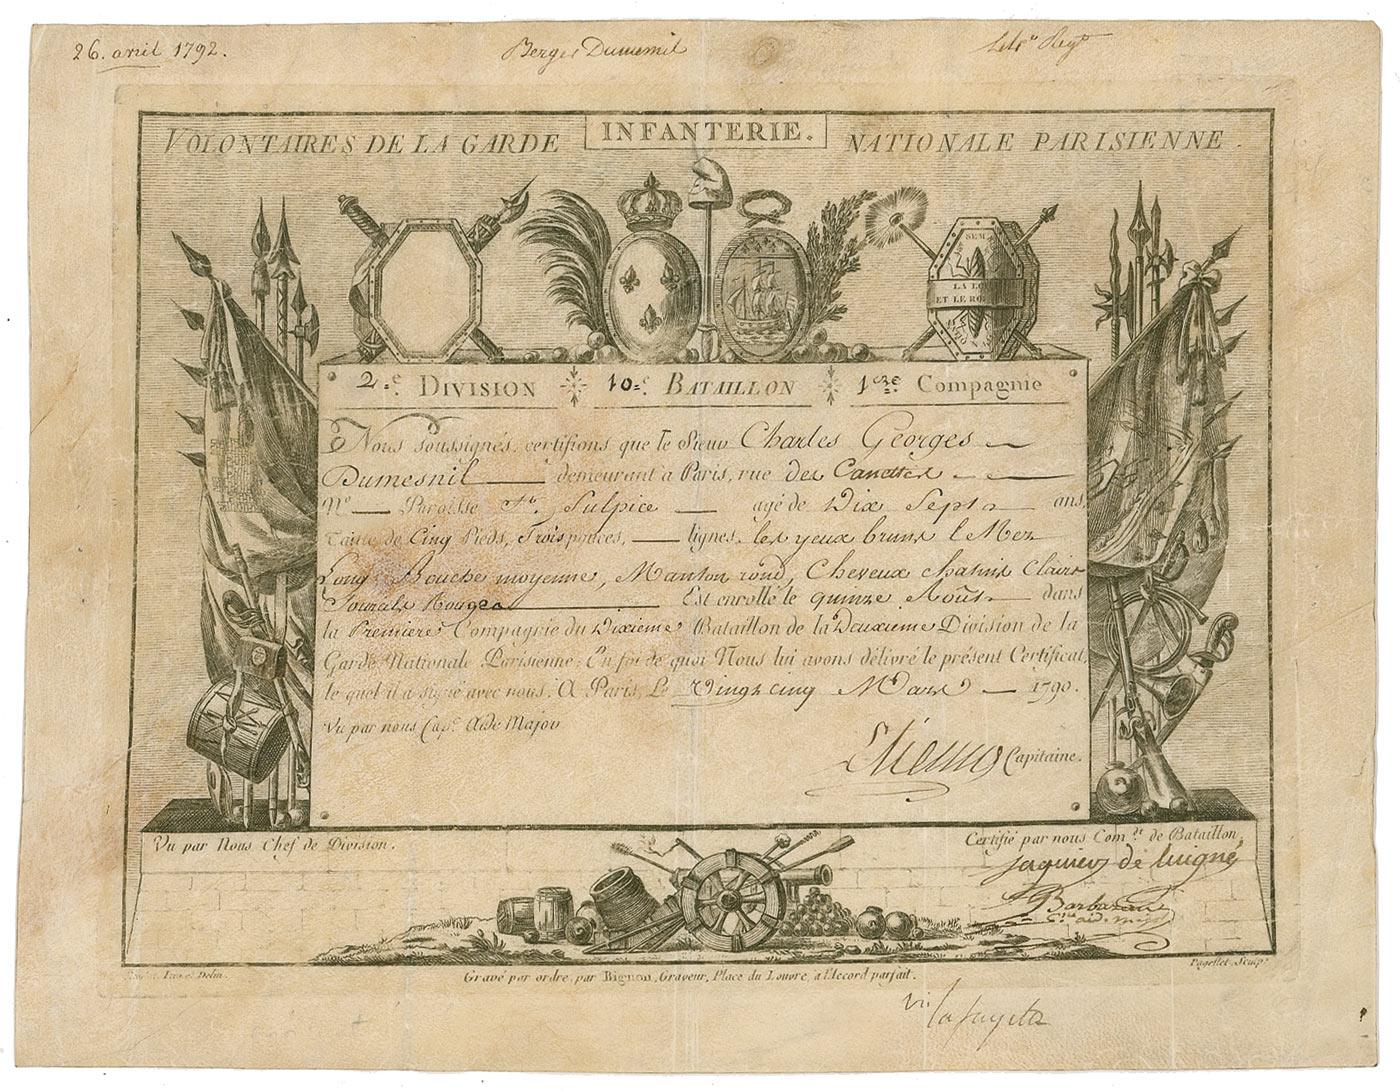 26. avril 1792.
Berger Dumesnil
VOLONTAIRES DE LA GARDE INFANTERIE. NATIONALE PARISIENNE.
LA LOI
ET LE ROI
2.e DIVISION 10.e BATAILLON 1.re Compagnie
Nous soussignés, certifions que le Sieur Charles Georges
Dumesnil demeurant à Paris, rue des Canettes
No Paroisse St. Sulpice agé de Dix Sept ans,
Taille de Cinq Pieds, Trois pouces, lignes, les yeux bruns le Nez
Long Bouche moyenne, Manton rond, Cheveux chatins Clairs
Sourcils Rouges Est enrollé le quinze Août dans
la Premiere Compagnie du Dixieme Bataillon de la Deuxieme Division de la
Garde Nationale Parisienne; En foi de quoi Nous lui avons délivré le présent Certificat,
le quel il a signé avec nous. A Paris, Le Vingt cinq Mars 1790.
Vu par nous Cap.e Aide Major
Capitaine.
Vu par Nous Chef de Division.
Certifié par nous Com.dt de Bataillon,
Jaquier de
Barbazan
Delin.
Gravé par ordre, par Bignon, Graveur, Place du Louvre, à l'Accord parfait.
Pagellet, Sculp.
vu
Lafayette